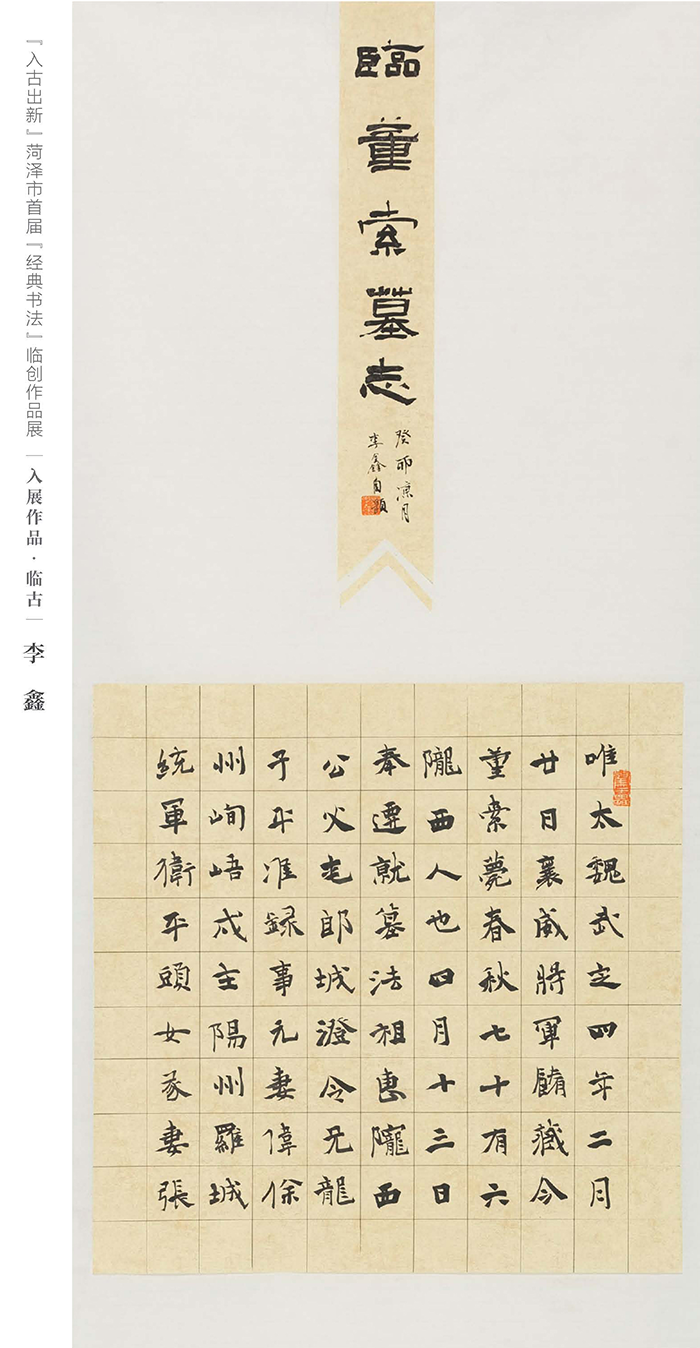 『入古出新』菏泽市首届『经典书法』临创作品展｜入展作品·临古｜李 鑫
臨董索墓志
癸卯凉月
李鑫自题
唯太魏武定四年二月
廿日襄威將軍藏令
董索薨春秋七十有六
隴西人也四月十三日
奉遷就墓法祖惠隴西
公父郎城澄令兄龍
子平准録事元妻偉保
州峋峿戍主陽州羅城
統軍衛平頭女妻張